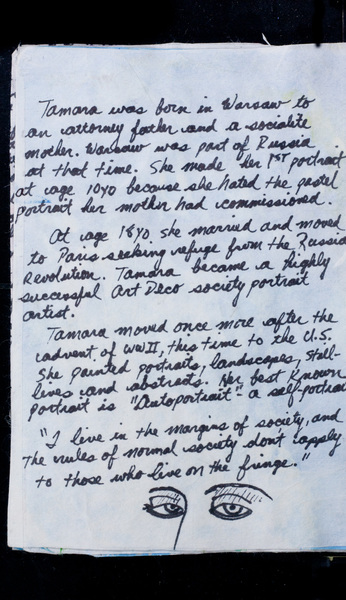 Tamara was born in Warsaw to
an attorney father and a socialite
mother. Warsaw was part of Russia
at that time. She made her 1ST portrait
at age 10yo because she hated the pastel
portrait her mother had commissioned.
At age 18yo she married and moved
to Paris seeking refuge from the Russia
Revolution. Tamara became a highly
successful Art Deco society portrait
artist.
Tamara moved once more after the
advent of WWII, this time to the U.S.
She painted portraits, landscapes, still-
lives and abstracts. Her best known
portrait is "Autoportrait" - a self-portrait
"I live in the margins of society, and
the rules of normal society don't apply
to those who live on the fringe."